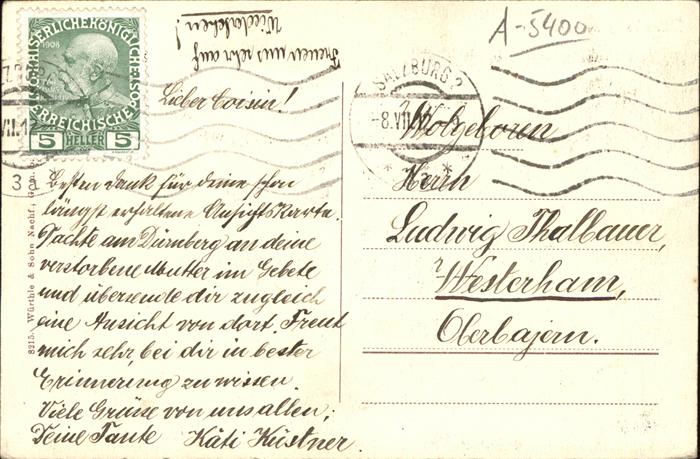 A-5400
KAISERLICHE KÖNIGLICHE ÖSTERREICHISCHE
1908
5 HELLER 5
SALZBURG 2
-8.VII.
3
Freuen uns sehr auf
Wiedersehen!
Lieber Coisin!
Besten Dank für deine schon
längst erhaltene Ansichtskarte.
Dachte am Dürnberg an deine
verstorbene Mutter im Gebete
und übersende dir zugleich
eine Ansicht von dort. Freut
mich sehr, bei dir in bester
Erinnerung zu wissen.
Viele Grüße von uns allen,
Deine Tante Käti Küstner.
Wolgeboren
Herrn
Ludwig Thalbauer,
Westerham,
Oberbajern.
8215. Würthle & Sohn Nachf.,